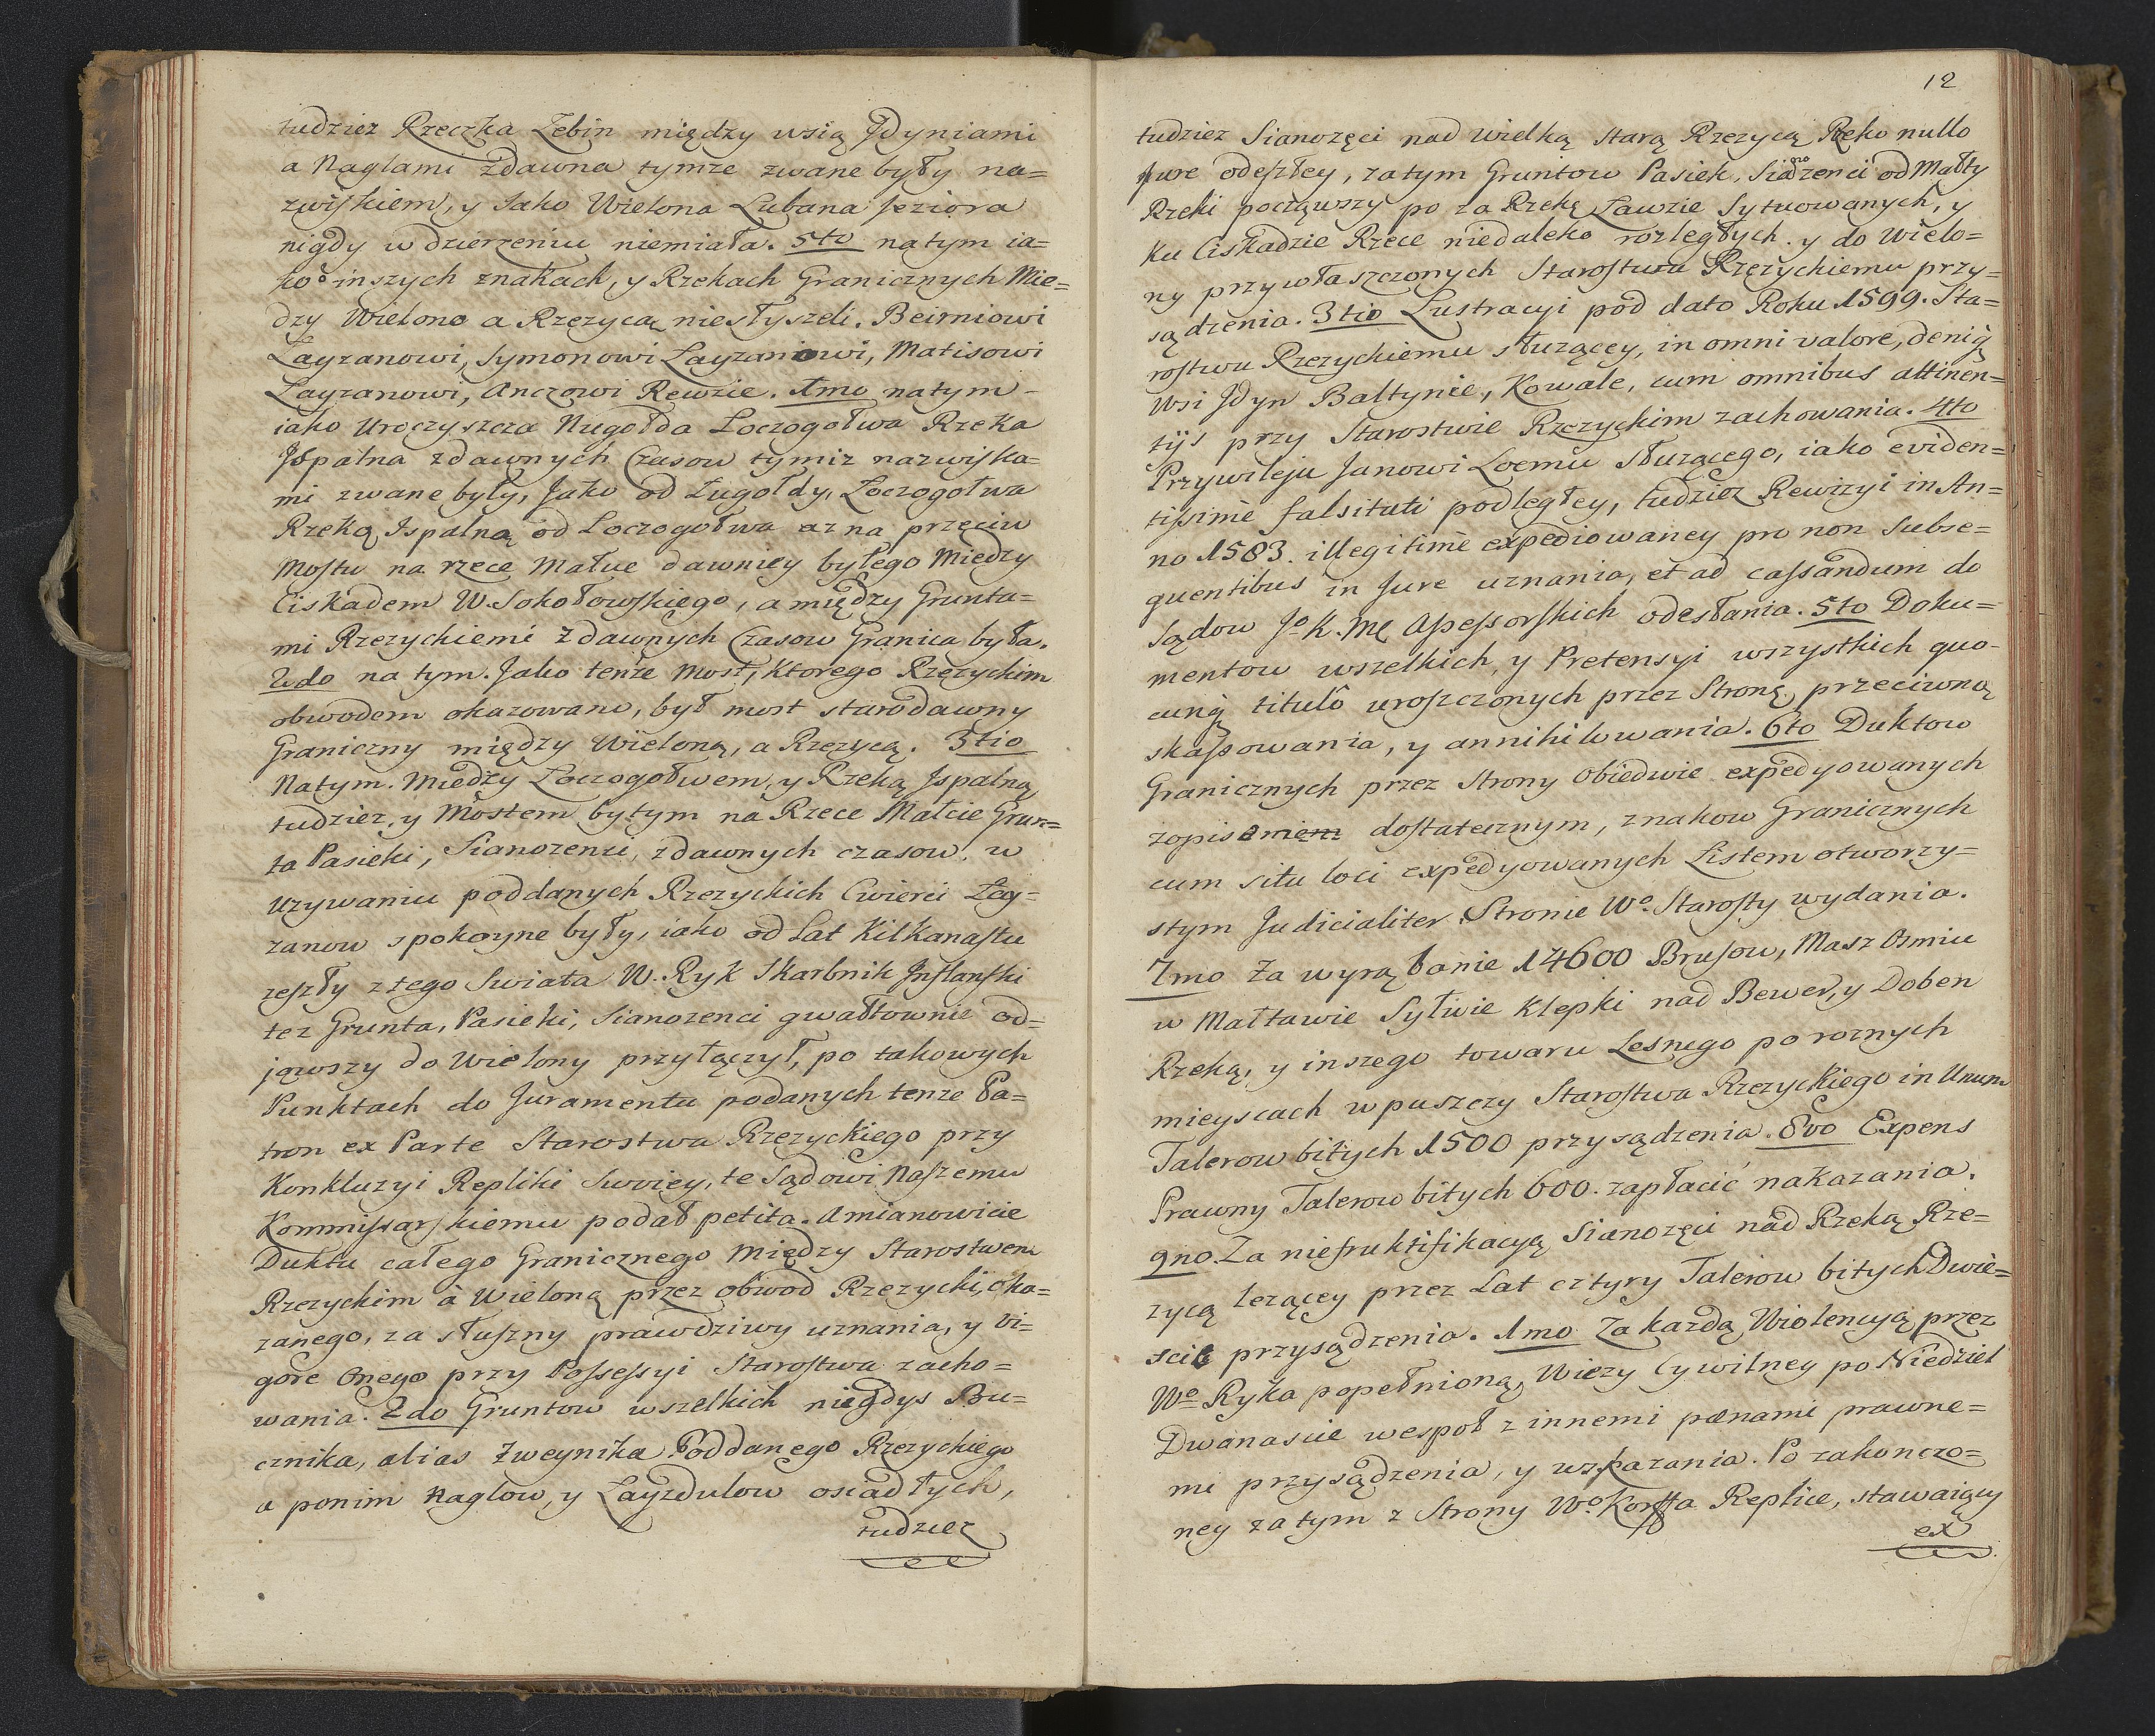 tudziez Rzeczka Zebin między wsią Jdyniami
a Naglami zdawna tymże zwane były na=
zwiskiem, y Jako Wielona Lubana Jeziora
nigdy w dzierzeniu niemiała. 5to na tym ia=
ko o inszych znakach, y Rzekach Granicznych Mie=
dzy Wielono a Rzezycą niesłyszeli. Beirniowi
Layzanowi, Symonowi Layzaniowi, Matisowi
Layzanowi, Anczowi Rewzie. 1mo na tym
iako Uroczyszcza Nugołda Łoczogołwa Rzeka
Jspalna zdawnych Czasow tymiz nazwiska=
mi zwane były, Jako od Ługołdy, Łoczogołwa
Rzeką Ispalną od Łoczogołwa az na przeciw
Mostu na rzece Małue dawniey byłego Między
Ciskadem W. Sokołowskiego, a między Grunta=
mi Rzezyckiemi zdawnych Czasow Granica była.
2do na tym. Jako tenże Most, Ktorego Rzezyckim
obwodem okazowano, był most starodawny
Graniczny między Wieloną, a Rzezycą. 3tio
Na tym. Miedzy Łoczogołwem, y Rzeką Jspalną
tudziez, y Mostem bytym na Rzece Małcie Grun=
ta Pasieki, Sianozenci, zdawnych czasow, w
uzywaniu poddanych Rzezyckich Cwierci Łay=
zanow spokoyne były, iako od Lat Kilkanastu
zeszły z tego Swiata W. Ryk Skarbnik Jnflanski
tez Grunta, Pasieki, Sianozenci gwałtownie od=
jąwszy do Wielony przyłączył, po takowych
Punktach do Juramentu podanych tenze Pa=
tron ex Parte Starostwa Rzezyckiego przy
Konkluzyi Repliki Swoiey, te Sądowi Naszemu
Kommissarskiemu podał petita. Amianowicie
Duktu całego Granicznego Między Starostwem
Rzezyckim à Wieloną przez obwod Rzezycki, oka=
zanego, za słuszny prawdziwy uznania, y vi=
gore onego przy Possessyi Starostwa zacho=
wania. 2do Gruntow wszelkich niegdys Bu=
cznika, alias Zweynika Poddanego Rzezyckiego
a ponim Naglow, y Layzdulow osiadłych,
tudziez
12
tudziez Sianozęci nad wielką starą Rzezycą Reko nullo
jure odeszłey, zatym Gruntow Pasiek, Sianozenci od Małty
Rzeki począwszy po za Rzekę Ławzie Sytuowanych, y
Ku Ciskadzie Rzece niedaleko rozległych. y do Wielo=
ny przywłaszczonych Starostwu Rzezyckiemu przy=
sądzenia. 3tio Lustracyi pod dato Roku 1599. Sta=
rostwu Rzezyckiemu słuzącey, in omni valore, denią
Wsi Jdyn Baltynie, Kowale, cum omnibus attinen=
tijs przy Starostwie Rzezyckim zachowania. 4to
Przywileju Janowi Loemu słuzącego, iako eviden=
tissimè falsitati podległey, tudziez Rewizyi in An=
no 1583. illegitimè expediowaney pro non subse=
quentibus in Jure uznania, et ad cassandum do
Sądow Jo K. Mę Assessorskich odesłania. 5to Doku=
mentow wszelkich, y Pretensyi wszystkich quo-
cunq̨ titulô uroszczonych przez Stronę przeciwną
skassowania, y annihilowania. 6to Duktow
Granicznych przez Strony Obiedwie expedyowanych
zopisaniem dostatecznym, znakow Granicznych
cum situ loci expedyowanych Listem otworzy=
stym Judicialiter Stronie Wo. Starosty wydania.
7mo Za wyrąbanie 14600 Brusow, Masz Osmiu
w Małtawie Sylwie Klepki nad Bewer, y Doben
Rzeką, y inszego towaru Lesnego po roznych
mieyscach w puszczy Starostwa Rzezyckiego in Unum
Talerow bitych 1500 przysądzenia. 8vo Expens
Prawny Talerow bitych 600. zapłacić nakazania.
9no. Za niefruktifikacyą Sianozęci nad Rzeką Rze=
zycą lezącey przez Lat cztyry Talerow bitych Dwie=
scie przysądzenia. 1mo Za kazdą Wiolencyą przez
Wo Ryka popełnioną, Wiezy Cywilney po Niedziel
Dwanascie wespoł z innemi pænami prawne=
mi przysądzenia, y wskazania. Po zakonczo=
ney zatym z Strony Wo Korffa Replice, stawaiący
ex